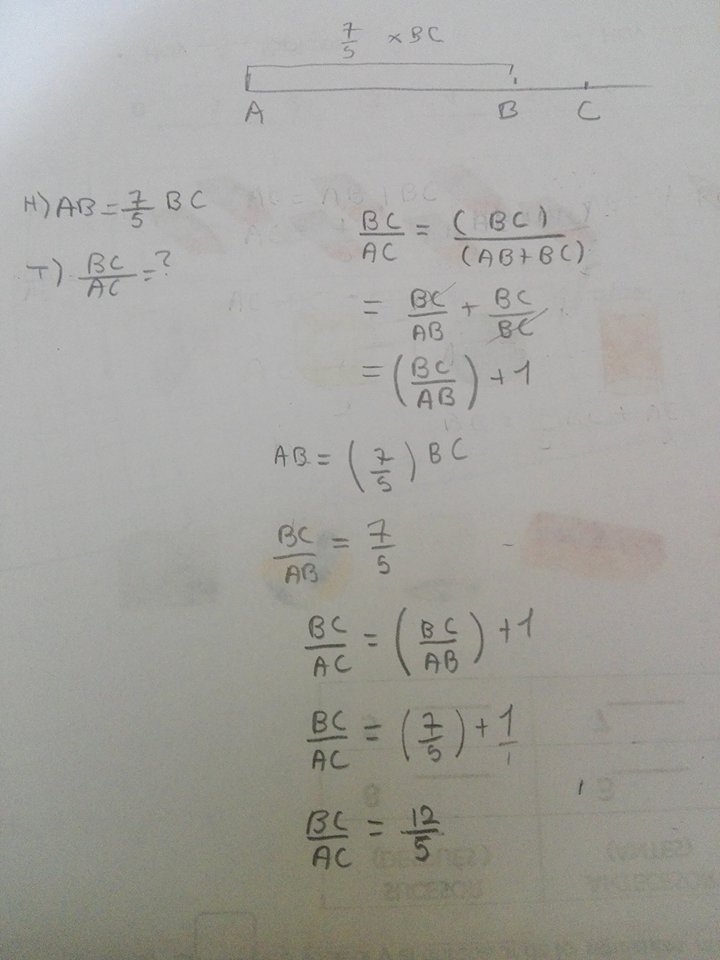 7/5 × BC
A B C
H) AB = 7/5 BC
T) BC/AC = ?
BC/AC = (BC)/(AB+BC)
= BC/AB + BC/BC
= (BC/AB) + 1
AB = (7/5) BC
BC/AB = 7/5
BC/AC = (BC/AB) + 1
BC/AC = (7/5) + 1/1
BC/AC = 12/5